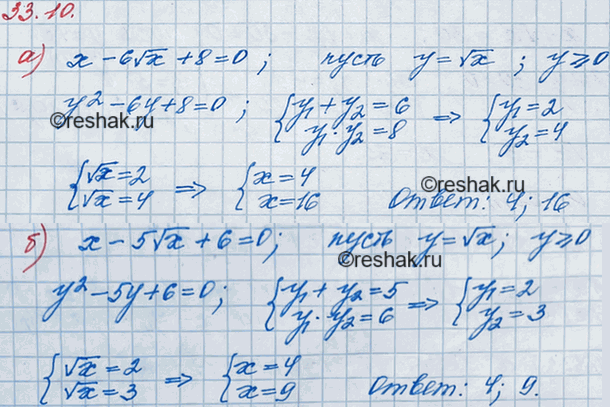 33.10.
а) x - 6√x + 8 = 0; пусть y = √x; y ⩾ 0
y² - 6y + 8 = 0; { y₁ + y₂ = 6 y₁·y₂ = 8 => { y₁ = 2 y₂ = 4
©reshak.ru
{ √x = 2 √x = 4 => { x = 4 x = 16 Ответ: 4; 16
©reshak.ru
б) x - 5√x + 6 = 0; пусть y = √x; y ⩾ 0
©reshak.ru
y² - 5y + 6 = 0; { y₁ + y₂ = 5 y₁·y₂ = 6 => { y₁ = 2 y₂ = 3
{ √x = 2 √x = 3 => { x = 4 x = 9 Ответ: 4; 9.